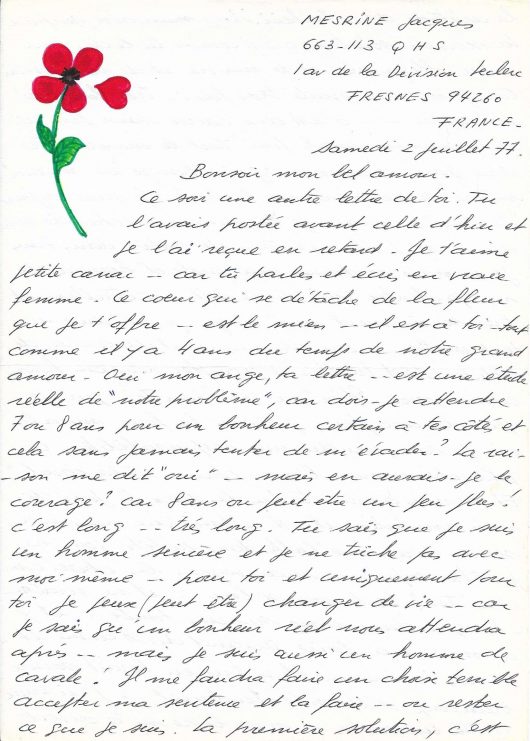 MESRINE Jacques
663-113 QHS
1 av de la Division Leclerc
FRESNES 94260
FRANCE-
Samedi 2 Juillet 77.
Bonsoir mon bel amour.
Ce soir une autre lettre de toi. Tu
l'avais postée avant celle d'hier et
je l'ai reçue en retard. Je t'aime
petite canac -- car tu parles et écris en vraie
femme. Ce coeur qui se détache de la fleur
que je t'offre -- est le mien -- il est à toi - tout
comme il y a 4 ans du temps de notre grand
amour - Oui mon ange, ta lettre -- est une étude
réelle de "notre problème", car dois-je attendre
7 ou 8 ans pour un bonheur certain à tes côtés et
cela sans jamais tenter de m'évader? La rai-
-son me dit "oui" -- mais en aurais-je le
courage? car 8 ans ou peut être un peu plus!
c'est long -- très long. Tu sais que je suis
un homme sincère et je ne triche pas avec
moi même -- pour toi et uniquement pour
toi je peux (peut être) changer de vie -- car
je sais qu'un bonheur réel nous attendra
après -- mais je suis aussi un homme de
cavale! Il me faudra faire un choix terrible
accepter ma sentence et la faire -- ou rester
ce que je suis. La première solution, c'est